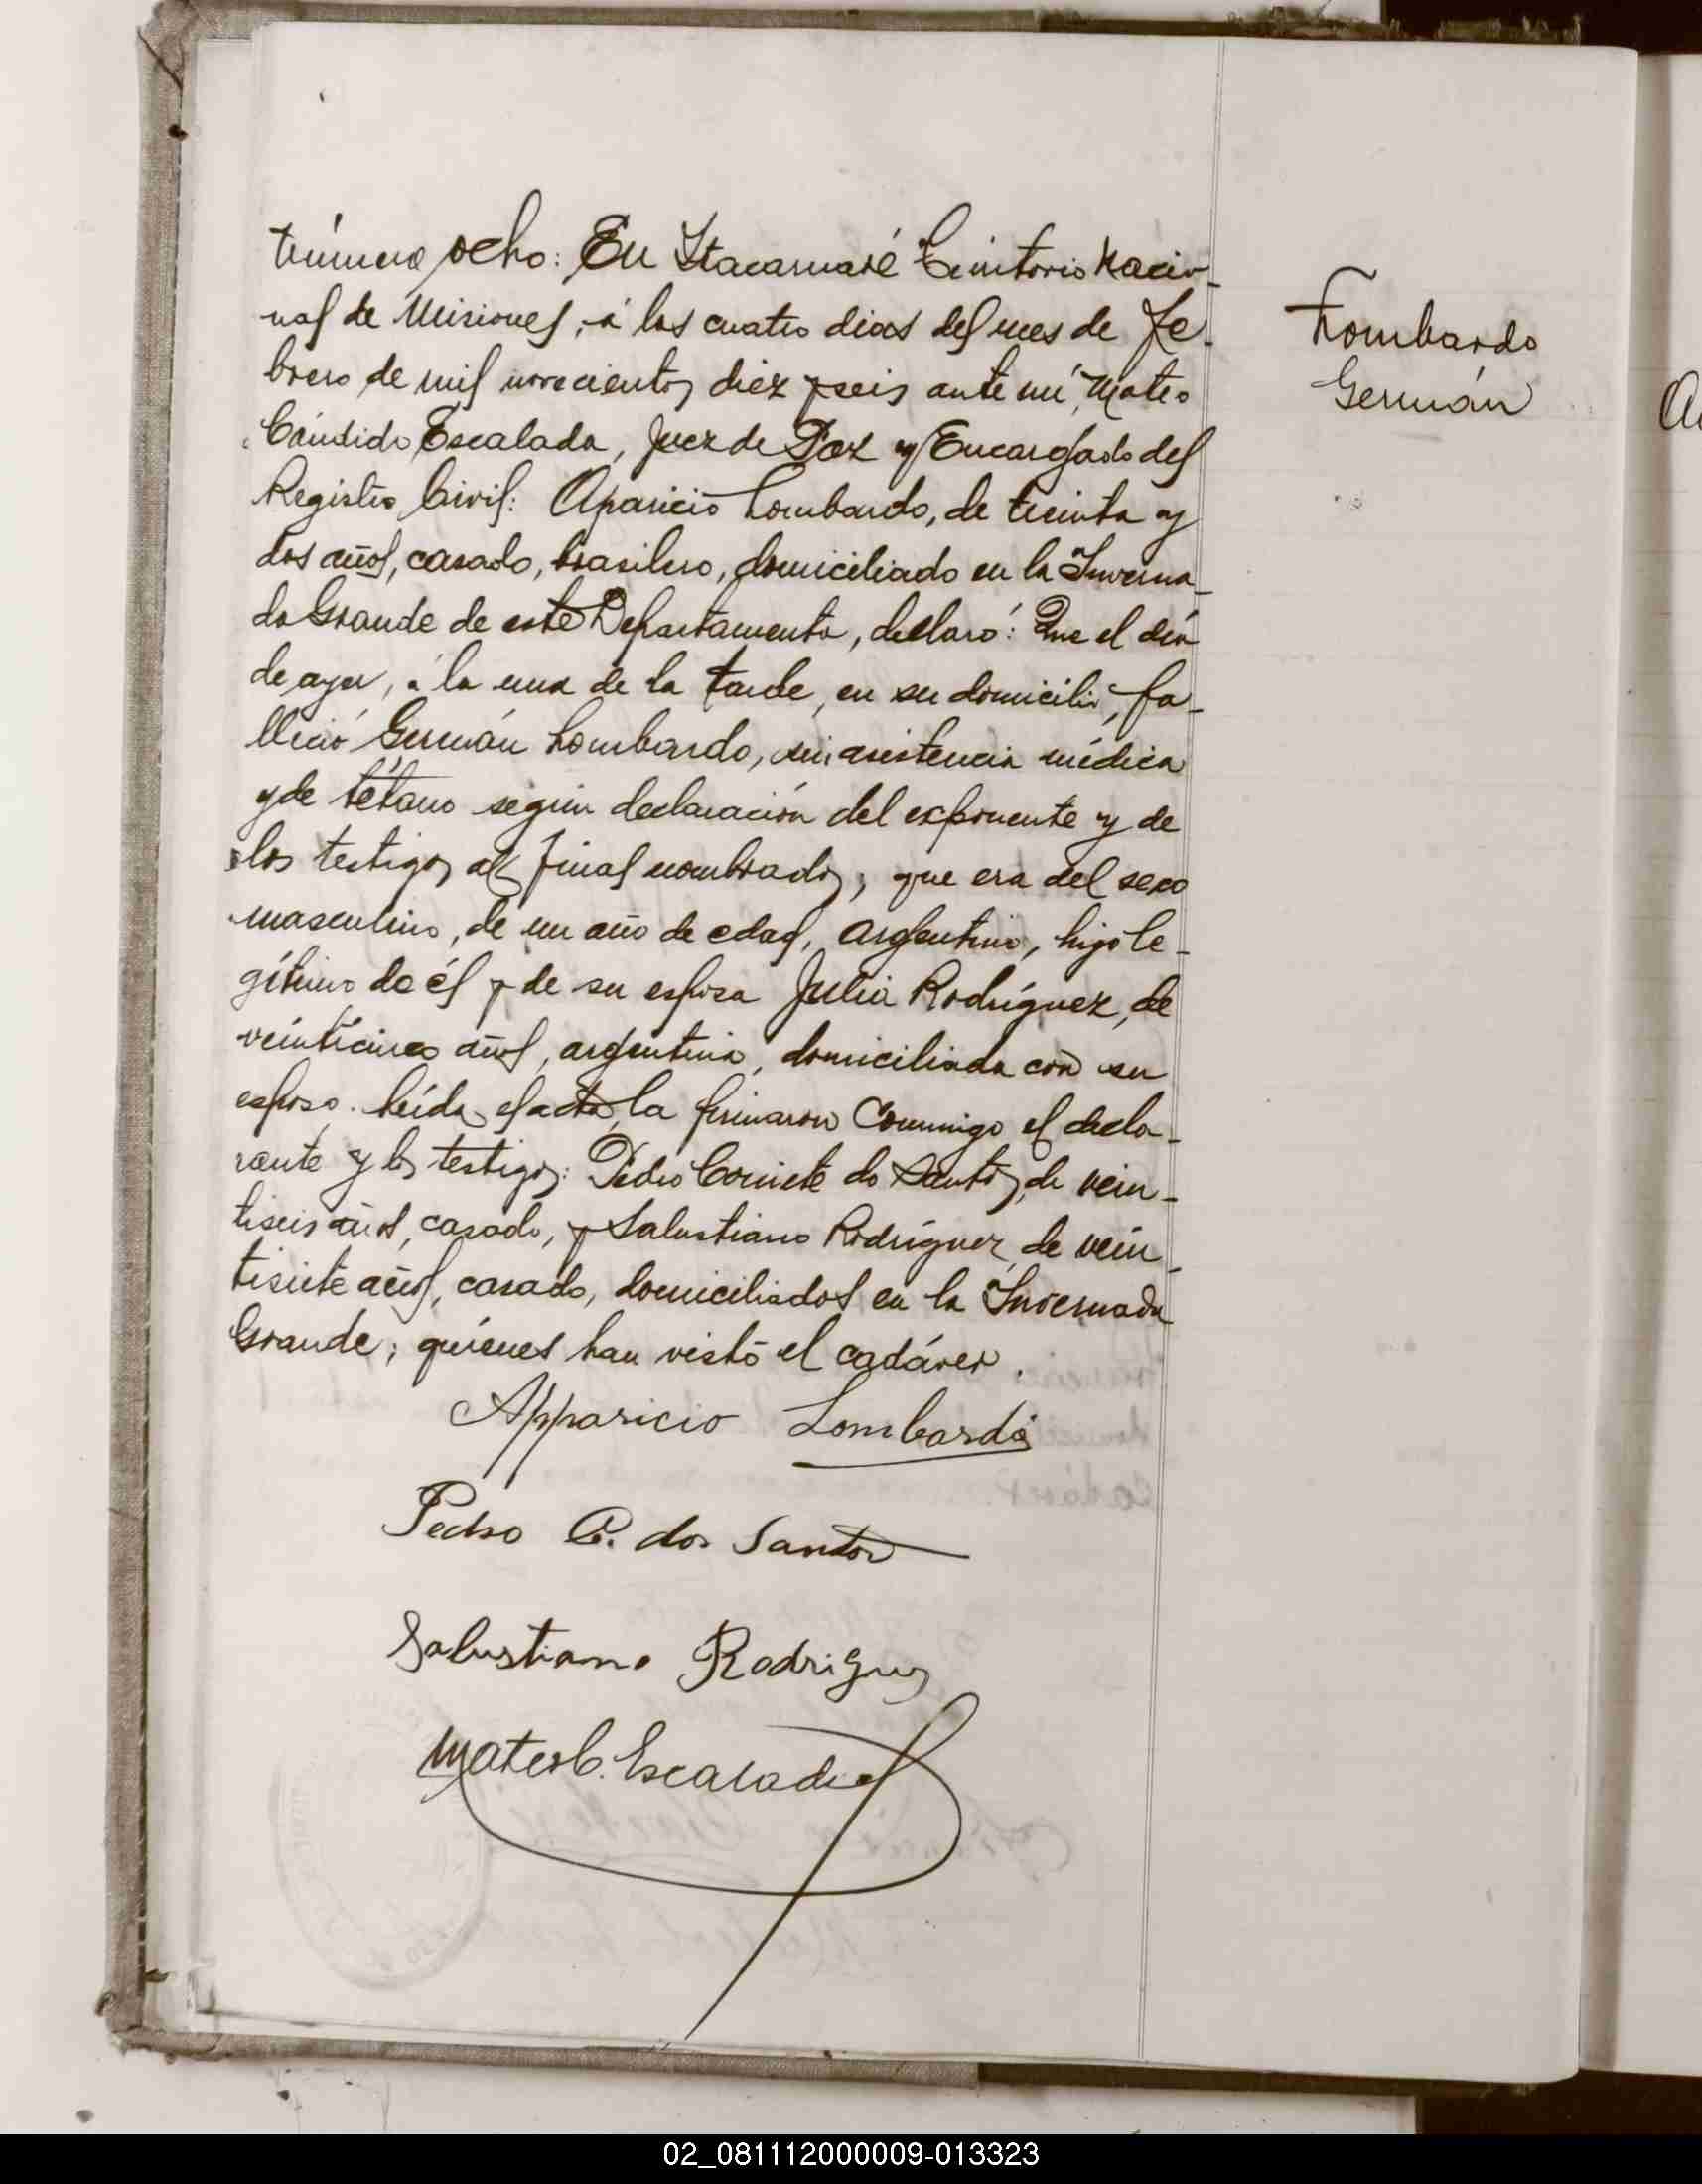 Número ocho: En Itacaruaré Territorio Nacio-
nal de Misiones, á los cuatro dias del mes de Fe-
brero de mil novecientos diez y seis ante mí, Mateo
Cándido Escalada, Juez de Paz y Encargado del
Registro Civil: Aparicio Lombardo, de treinta y
dos años, casado, brasilero, domiciliado en la Inverna-
da Grande de este Departamento, declaró: Que el día
de ayer, á la una de la tarde, en su domicilio, fa-
lleció Germán Lombardo, sin asistencia médica
y de tétano según declaración del exponente y de
los testigos al final nombrados; que era del sexo
masculino, de un año de edad, argentino, hijo le-
gítimo de él y de su esposa Julia Rodríguez, de
veinticinco años, argentina, domiciliada con su
esposo. Leída el acta, la firmaron conmigo el decla-
rante y los testigos: Pedro do Santos, de vein-
tiseis años, casado, y Salustiano Rodríguez, de vein-
tisiete años, casado, domiciliados en la Invernada
Grande; quiénes han visto el cadáver.
Apparicio Lombardo
Pedro C. dos Santos
Salustiano Rodriguez
Mateo C. Escalada
Lombardo
Germán
02_081112000009-013323